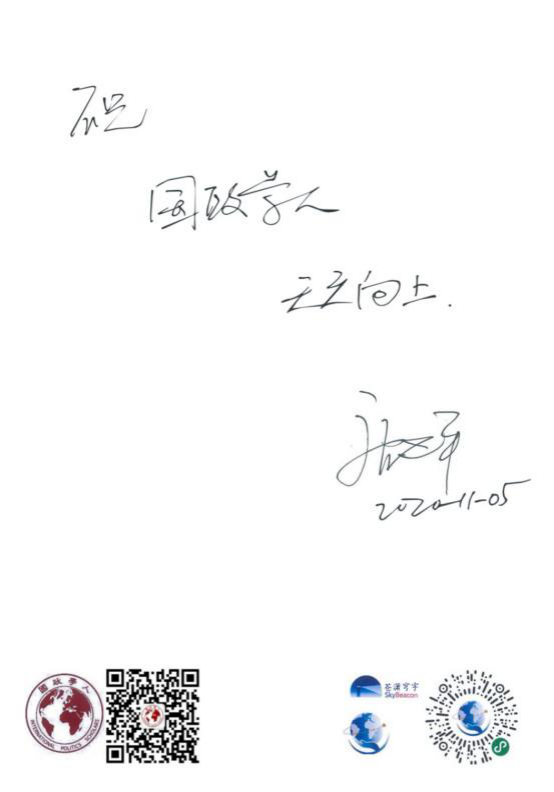 祝
国政学人
天天向上.
2020-11-05
國政學人
INTERNATIONAL POLITICS SCHOLARS
SkyBeacon